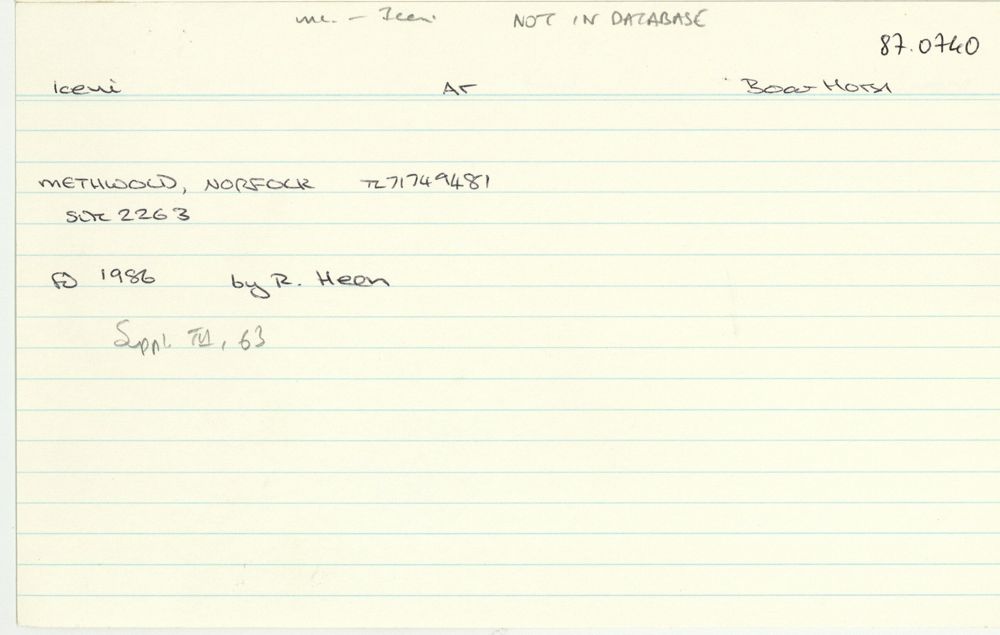 unc. - Iceni NOT IN DATABASE
87.0740
Iceni AR Boar Horse
METHWOLD, NORFOLK TL71749481
Site 2263
fd 1986 by R. Heen
Suppl. III, 63